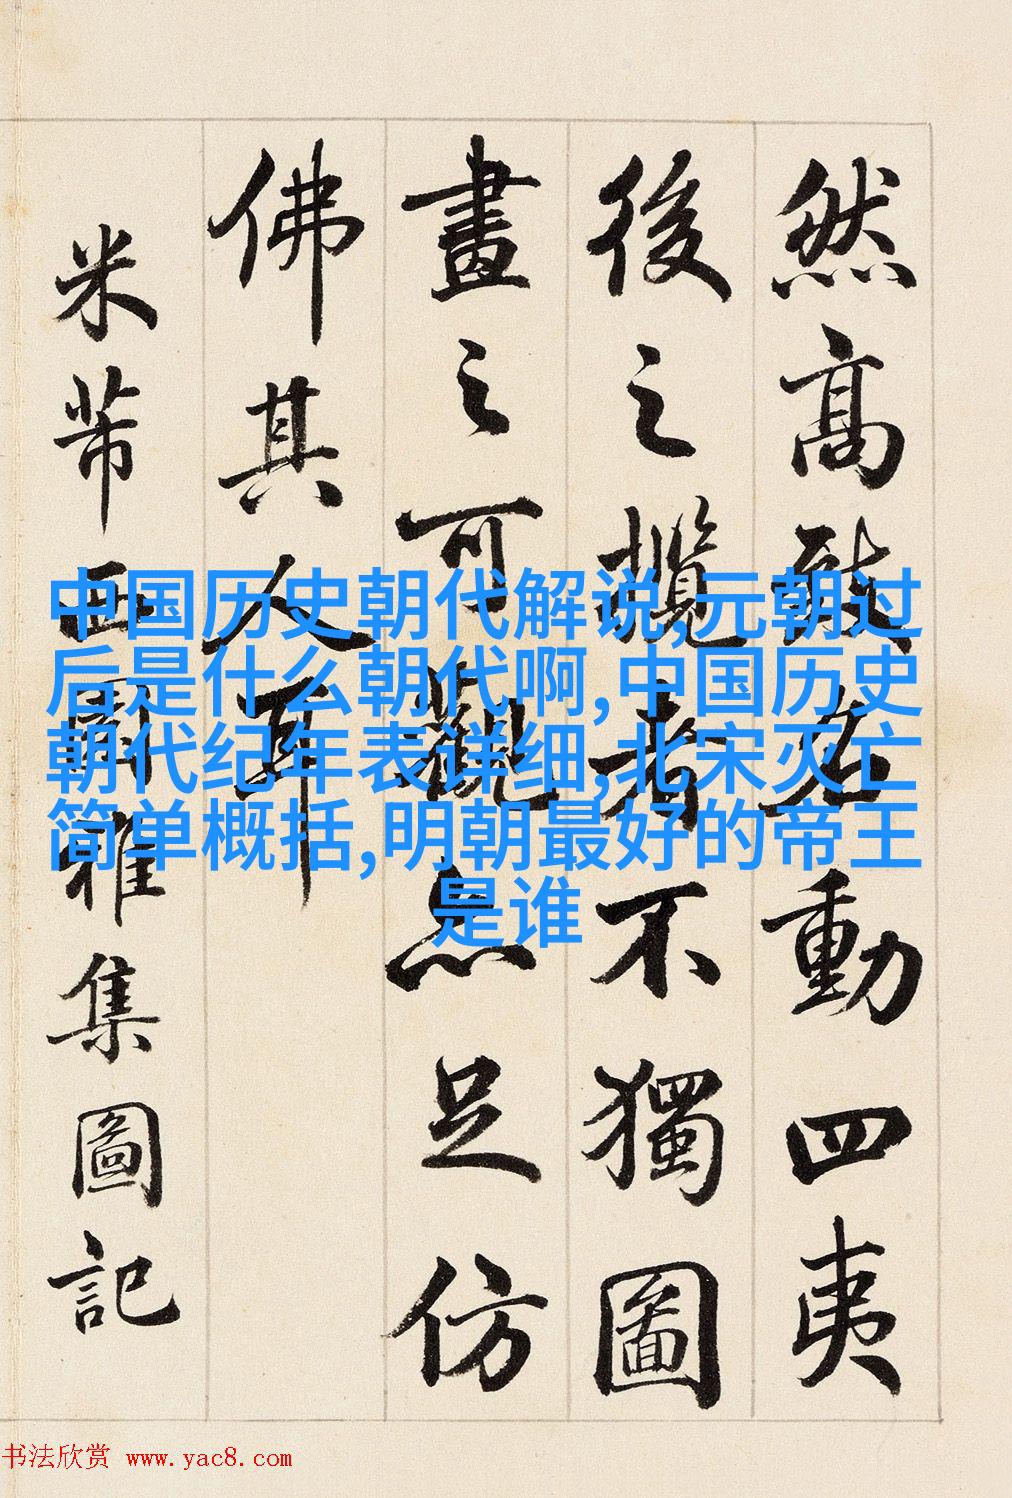 然高致名動四夷
後之攬者不獨圖
畫之可觀亦足仿
佛其人耳
米芾西園雅集圖記
中国历史朝代解说,元朝过
后是什么朝代啊,中国历史
朝代纪年表详细,北宋灭亡
简单概括,明朝最好的帝王
是谁
书法欣赏 www.yac8.com